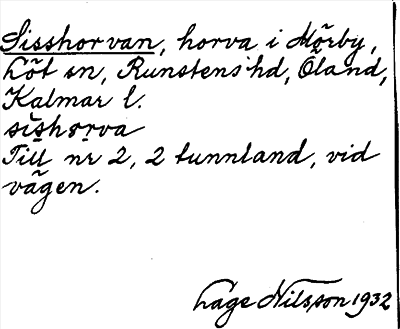 Sisshorvan, horva i Mörby,
Löt sn, Runstens hd, Öland,
Kalmar l.
sishorva
Till nr 2, 2 tunnland, vid
vägen.
Lage Nilsson 1932